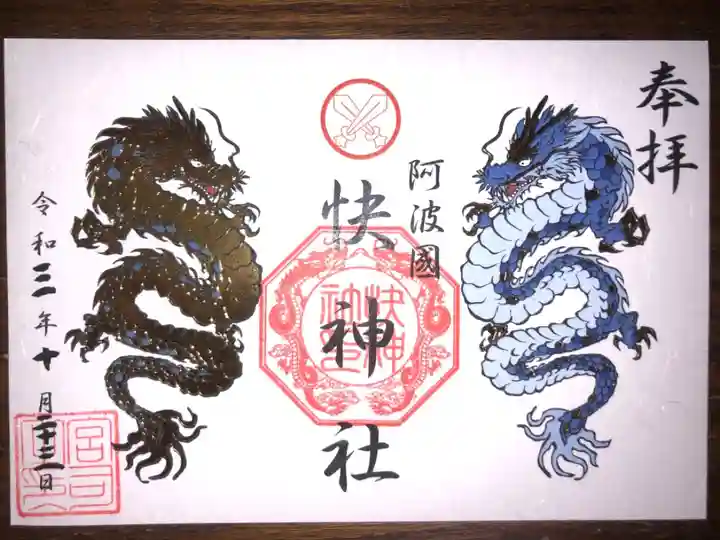 奉拝
阿波國
快神社
快神
神社印
令和三年十月二十三日
宮司